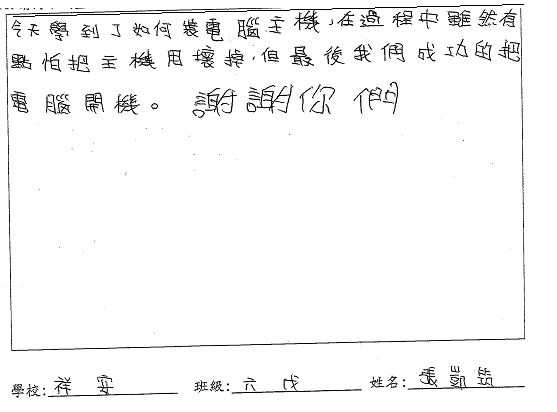 今天學到了如何裝電腦主機,在過程中雖然有
點怕把主機用壞掉,但最後我們成功的把
電腦開機。 謝謝你們
學校: 祥安 班級: 六戊 姓名: 張凱筑